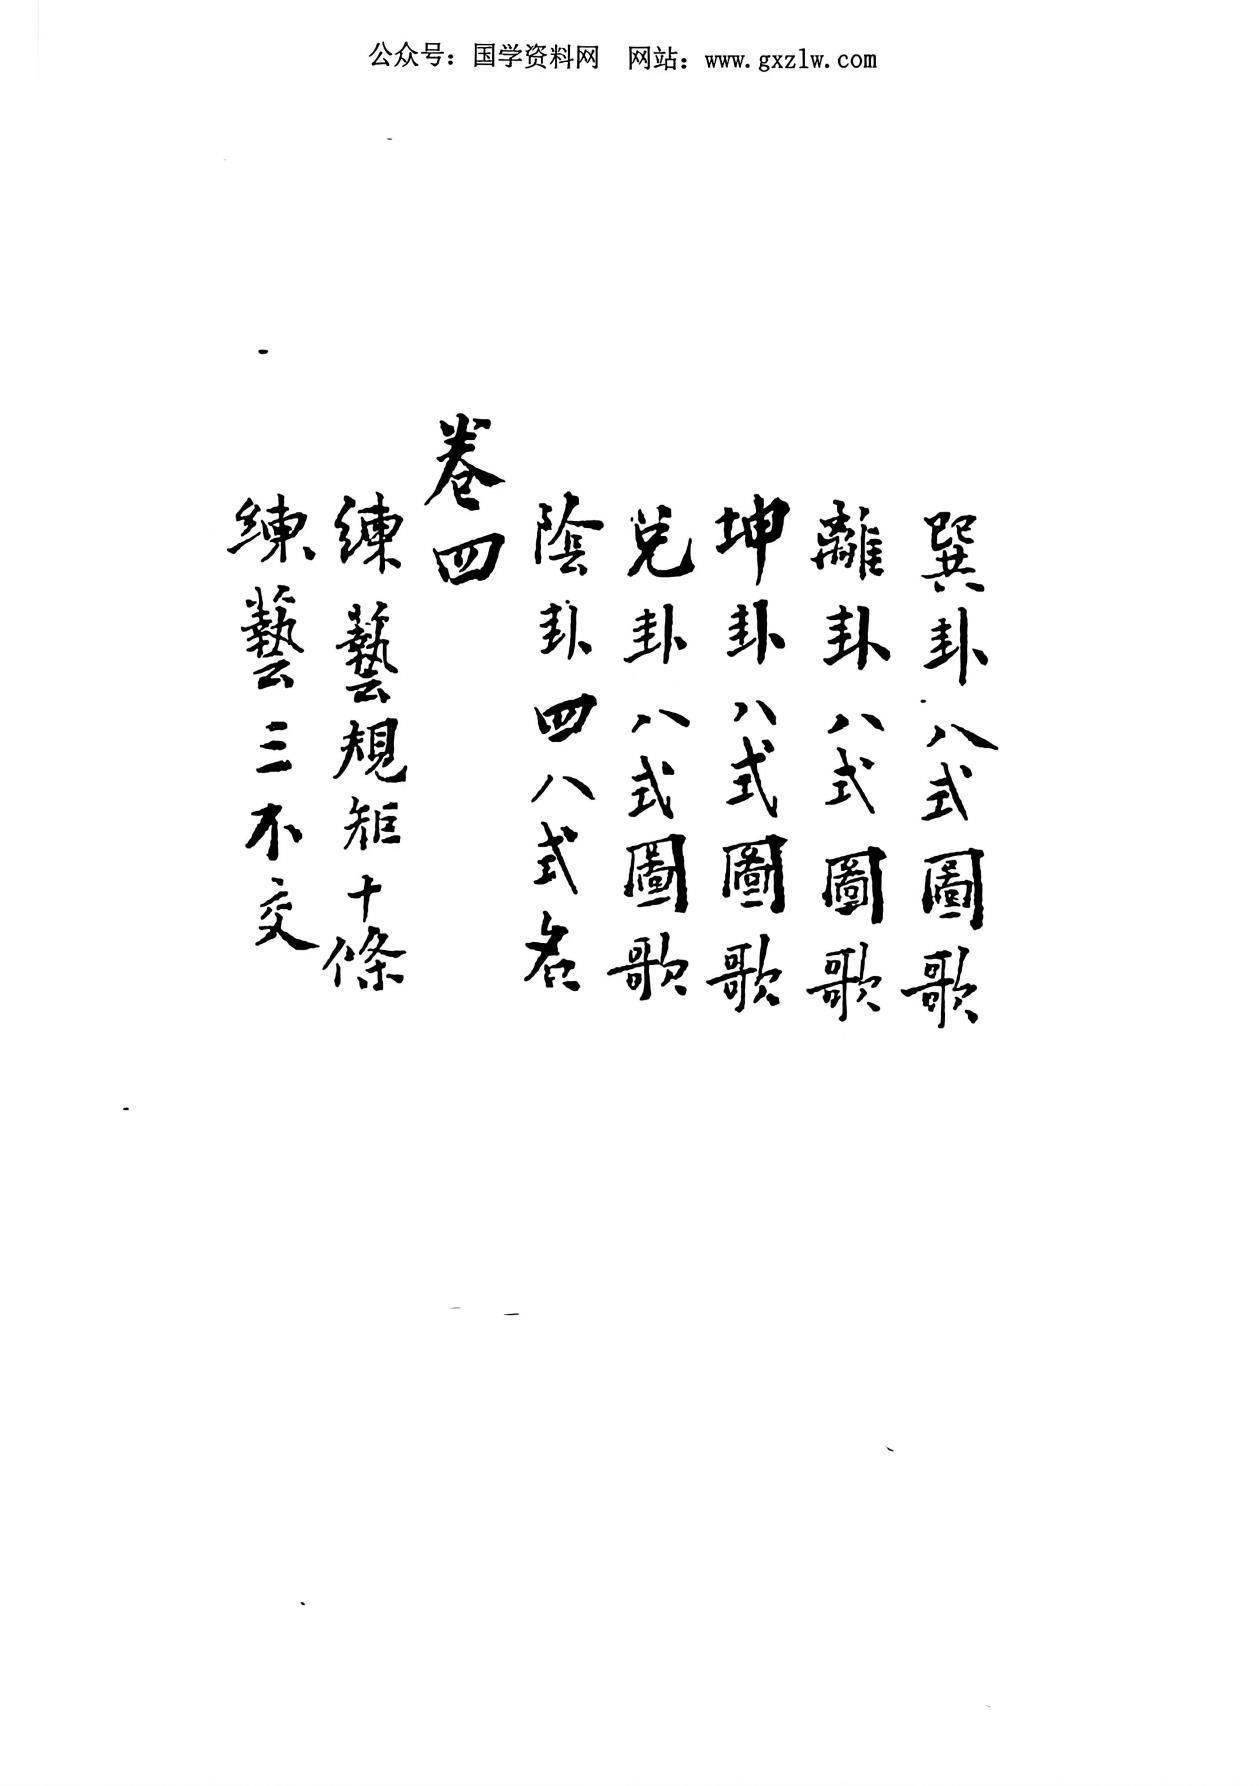 公众号：国学资料网　网站：www.gxzlw.com
巽卦八式圖歌
離卦八式圖歌
坤卦八式圖歌
兌卦八式圖歌
陰卦四八式名
卷四
練藝規矩十條
練藝三不交